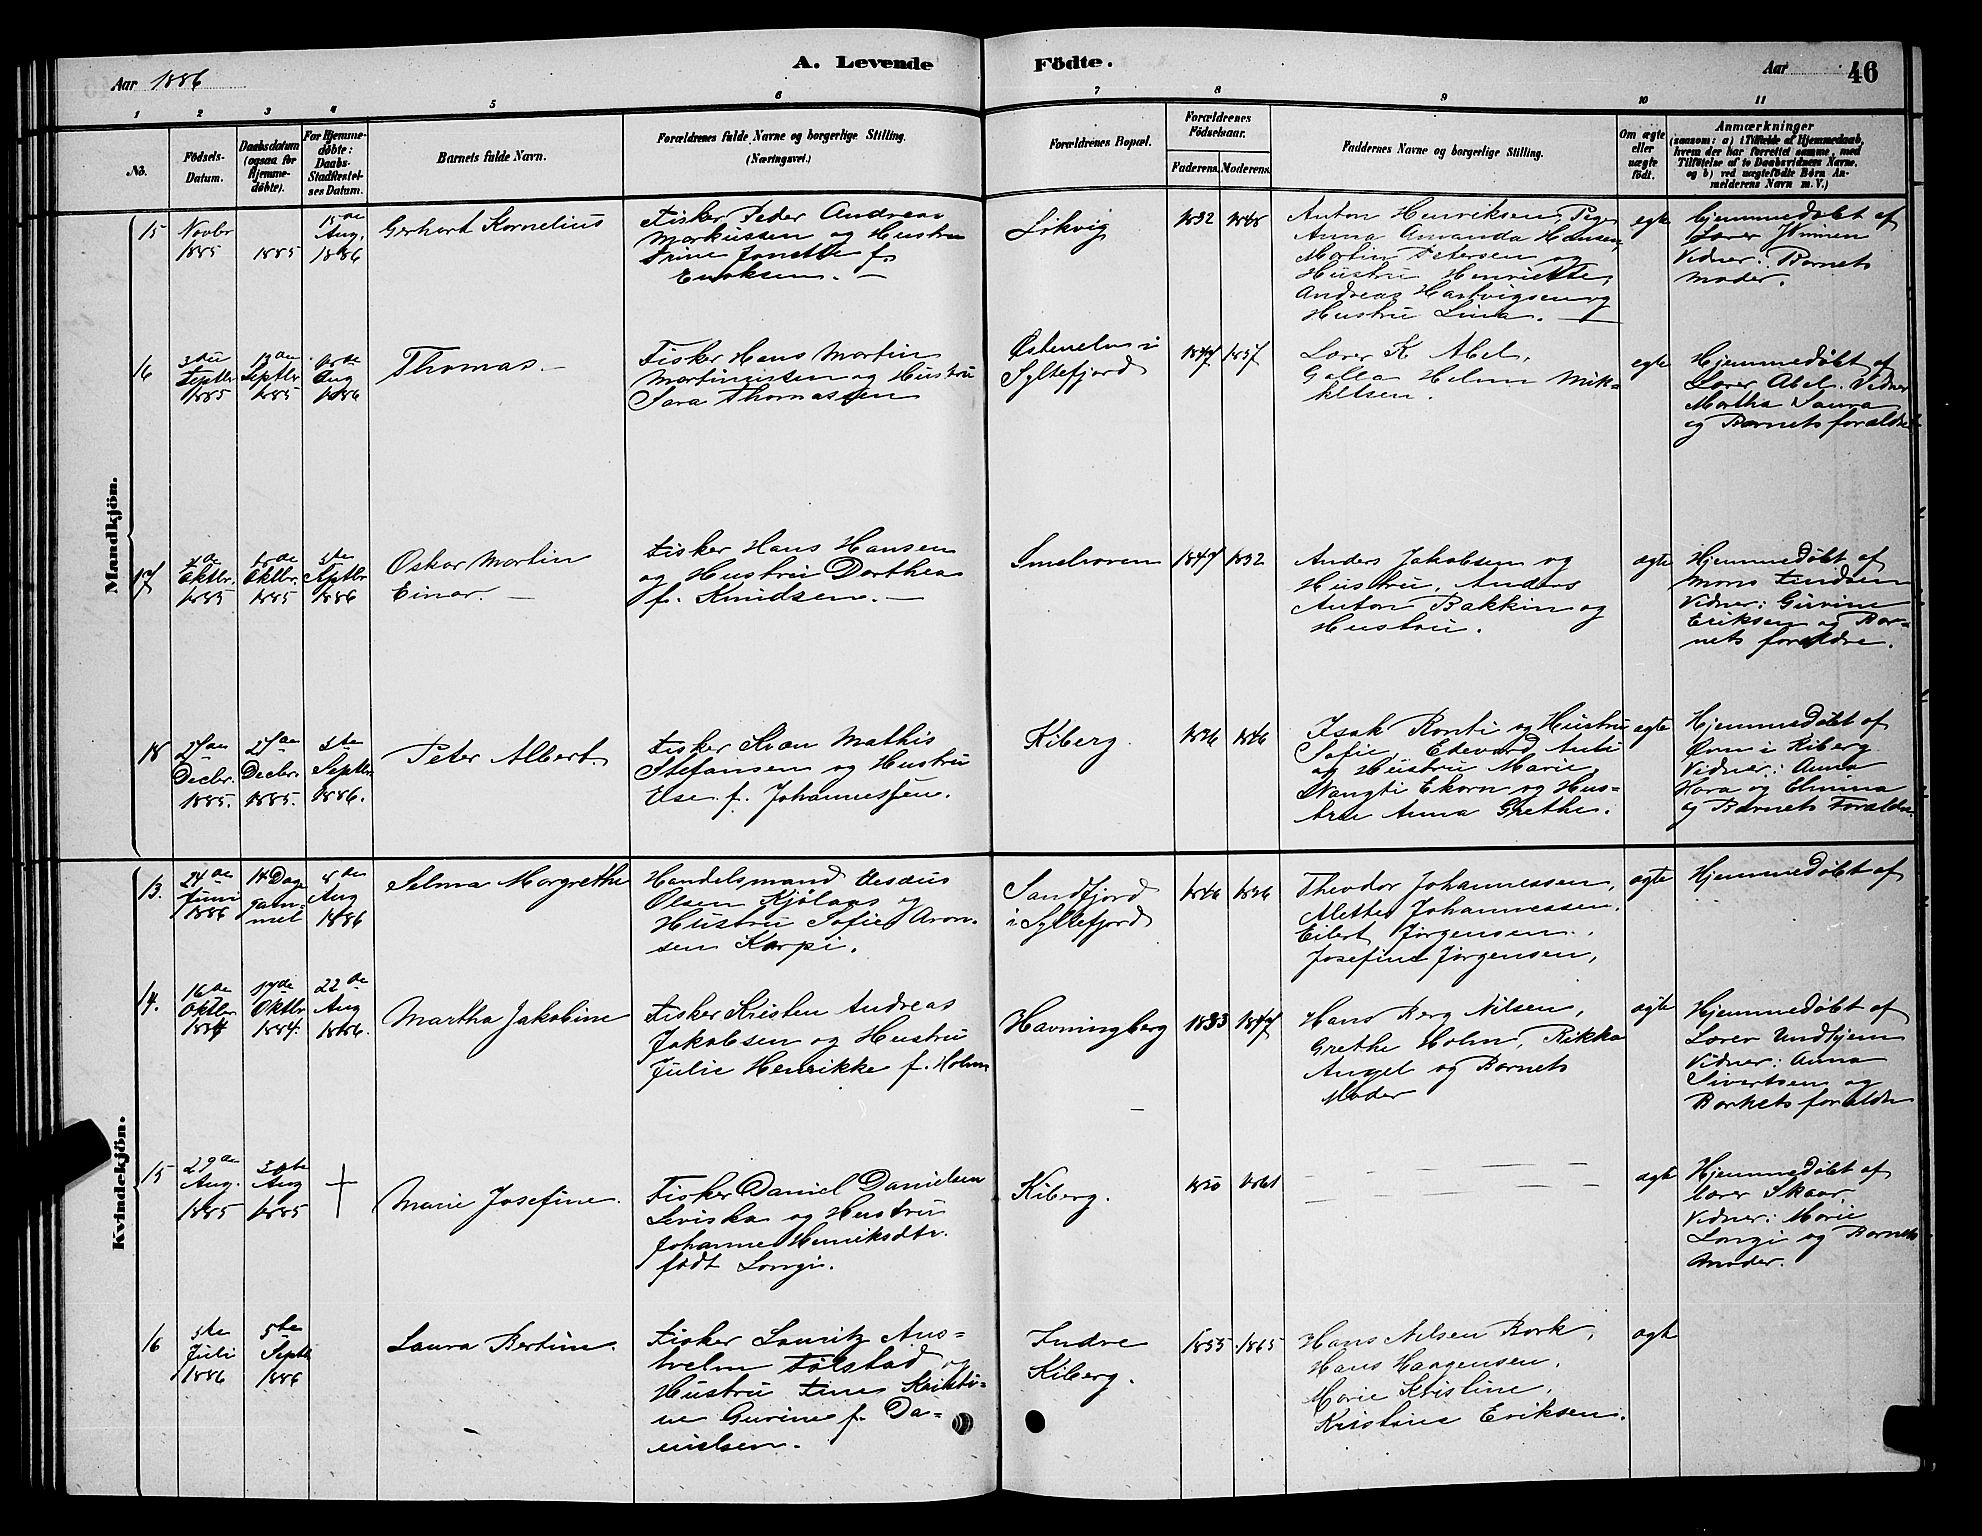 Aar 1886
A. Levende
Födte.
Aar
46
1 2 3 4 5 6 7 8 9 10 11
No.
Födsels-
Datum.
Daabsdatum
(ogsaa for
Hjemme-
döbte).
For Hjemme-
döbte:
Daabs-
Stadfæstel-
ses Datum.
Barnets fulde Navn.
Forældrenes fulde Navne og borgerlige Stilling.
(Næringsvei.)
Forældrenes Bopæl.
Forældrenes
Födselsaar.
Faderens. Moderens.
Faddernes Navne og borgerlige Stilling.
Om ægte
eller
uægte
födt.
Anmærkninger
(saasom: a) i Tilfælde af Hjemmedaab,
hvem der har forrettet samme, med
Tilföielse af to Daabsvidners Navne,
og b) ved uægtefödte Börn An-
melderens Navn m. V.)
Mandkjön.
15
Novbr
1885
1885
15de
Aug.
1886
Gerhart Kornelius
Fisker Peder Andreas
Markussen og Hustru
Trine Jonette f.
Enoksen.
1832 1848
Anton Henriksen, Pige
Anna Amanda Hansen,
Martin Petersen og
Hustru Henriette,
Andreas Hartvigsen og
Hustru Lina.
egte
Hjemmedøbt af
Lærer
Vidner: Barnets
moder.
16
3die
Septbr
1885
13de
Septbr
1885
Aug
1886
Thomas.
Fisker Hans Martin
og Hustru
Sara Thomassen
Østerelv i
Syltefjord
1847 1857
Lærer K. Abel,
Helm Mik-
kelsen.
egte
Hjemmedøbt af
Lærer Abel. Vidner
Martha Laura
og Barnets forældre
17
Oktbr.
1885
Oktbr.
1885
5te
Septbr
1886
Oskar Martin
Einar.
Fisker Hans Hansen
og Hustru Dorthea
f. Knudsen.
Smelroren
1847 1832
Anders Jakobsen og
Hustru, Anders
Anton Bakkin og
Hustru.
ægte
Hjemmedøbt af
Mons
Vidner:
Eriksen og Bar-
nets forældre.
18
27de
Decbr.
1885.
27de
Decbr.
1885.
5te
Septbr
1886.
Peter Albert.
Fisker Mathis
Stefansen og Hustru
Else f. Johannessen.
Kiberg.
1846
Isak Ronti og Hustru
Sofie, Edevard Anti
og Hustru Marie,
Ekorn og Hus-
tru Anna Grethe.
ægte
Hjemmedøbt af
i Kiberg
Vidner: Anna
og Elmina
og Barnets Forældre.
Kvindekjön.
13.
24de
Juni
1886
14 Dage
gam-
met
8de
Aug
1886
Selma Margrethe
Handelsmand
Olsen Kjølaas og
Hustru Sofie Aron-
sen Karpi.
Sandfjord
i Syltefjord
1846
Theodor Johannessen,
Mette Johannessen.
Eilert Jørgensen.
Josefine Jørgensen,
ægte
Hjemmedøbt af
14.
16de
Oktbr
1884
17de
Oktbr
1884.
22de
Aug
1886.
Martha Jakobine
Fisker Kristen Andreas
Jakobsen og Hustru
Julie Henrikke f. Holm
Havningberg
1833 1847
Hans Berg Nilsen,
Grethe Holm, Rikka
Angel og Barnets
Moder
ægte
Hjemmedøbt af
Lærer Undhjem
Vidner: Anna
Sivertsen og
Barnets forældre
15
29de
Aug.
1885
30te
Aug
1885
Marie Josefine.
Fisker Daniel Danielsen
Leviska og Hustru
Johanne Henriksdtr.
født Longi.
Kiberg.
1850 1861
ægte
Hjemmedøbt af
lærer Skaar.
Vidner: Marie
Longi og Barnets
moder.
16
5te
Juli
1886
5te
Septbr
1886
Laura Bertine.
Fisker Lauritz Ans-
helm Følstad og
Hustru Tine Kristi-
ne Gurine f. Da-
nielsen.
Indre
Kiberg.
1855 1865
Hans Nilsen Bork,
Hans Haagensen,
Marie Kristine,
Kristine Eriksen.
ægte